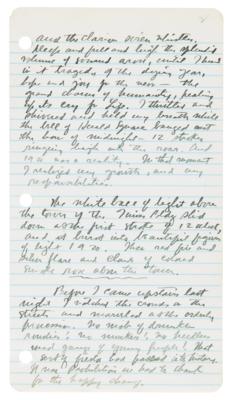 and the clarion siren whistles.
Deep and full and high the splendid
volume of sound arose, until I heard
in it tragedy of the dying year,
hope and joy for the new — the
grand chorus of humanity, pealing
of its cry for Life. I thrilled and
shivered and held my breath while
the bell of Herald Square banged out
the hour of midnight. 12 strokes
ringing high into the roar. And
19 was a reality. In that moment
I realized my growth, and my
responsibilities.
The white ball of light above
the tower of the Times Bldg. slid
down as the first stroke of 12 struck,
and it burst into beautiful
of light 1920. Then red fire and
flare and clouds of colored
smoke rose above the tower.
Before I came upstairs last
night I watched the crowds in the
streets and marveled at the orderly
procession. No mob of drunken
rowdies, no murders, no reckless
gangs of young people! That
sort of had passed into history.
If now Prohibition we have to thank
for the happy change.